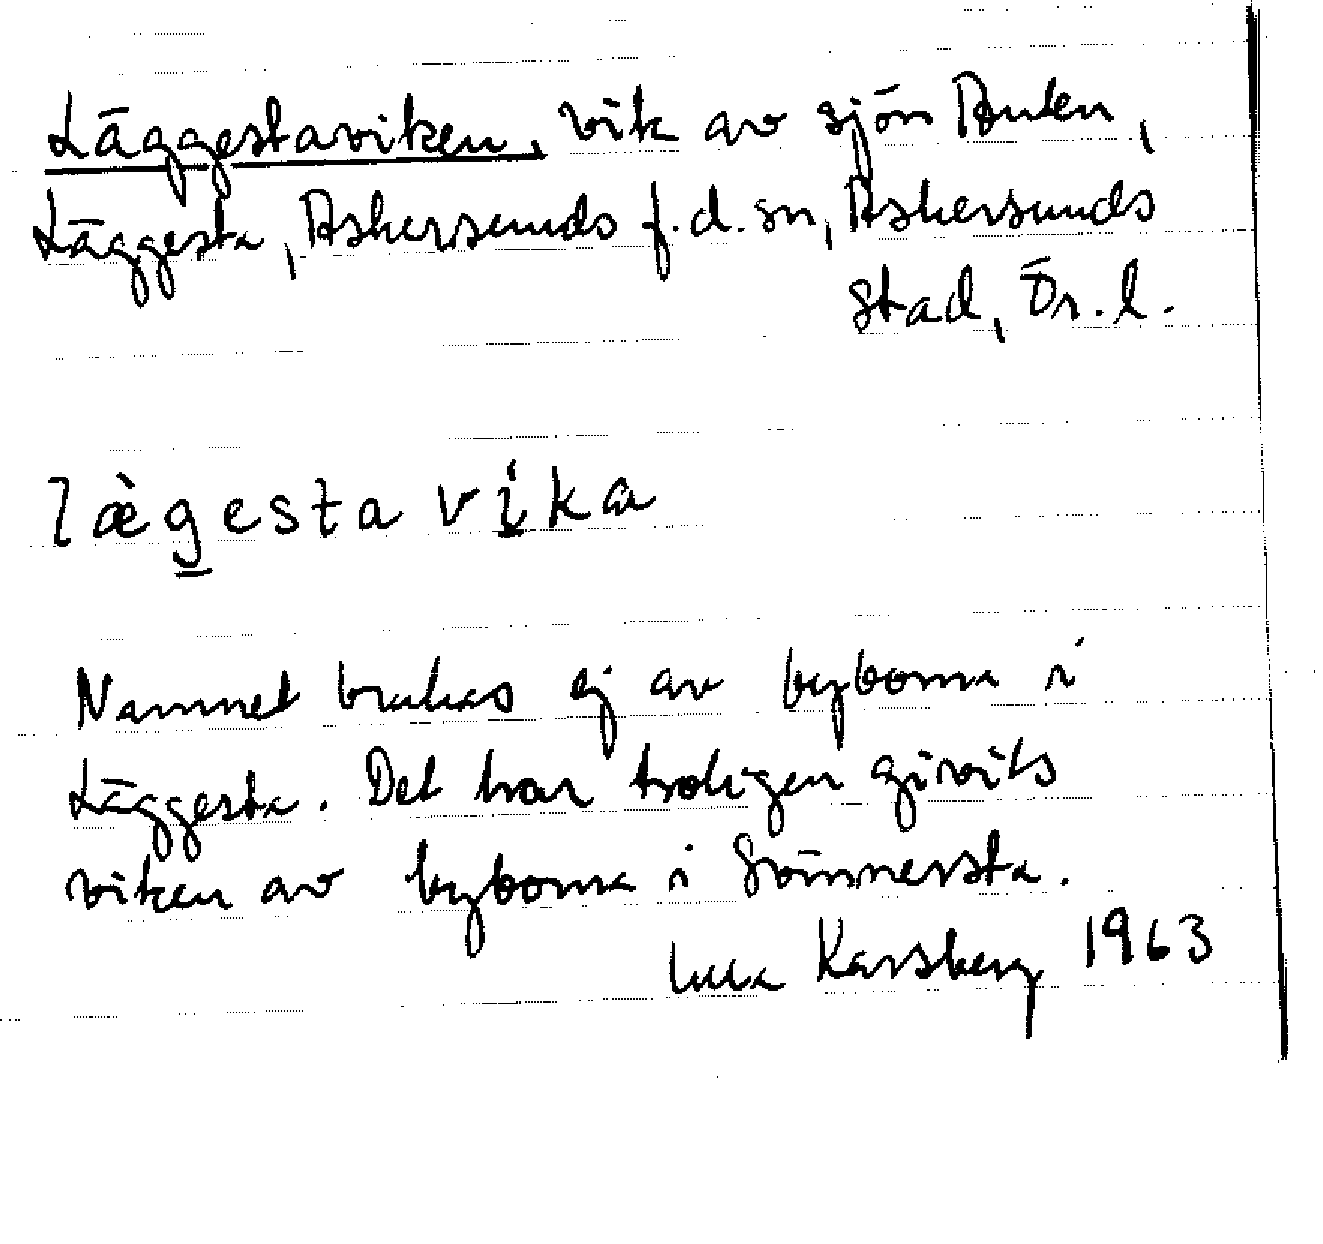 Läggestaviken, vik av sjön Åmmen,
Läggesta, Askersunds f.d. sn, Askersunds
stad, Ör. l.
lægesta vika
Namnet brukas ej av byborna i
Läggesta. Det har troligen givits
viken av byborna i Svinnersta.
Karsberg 1963